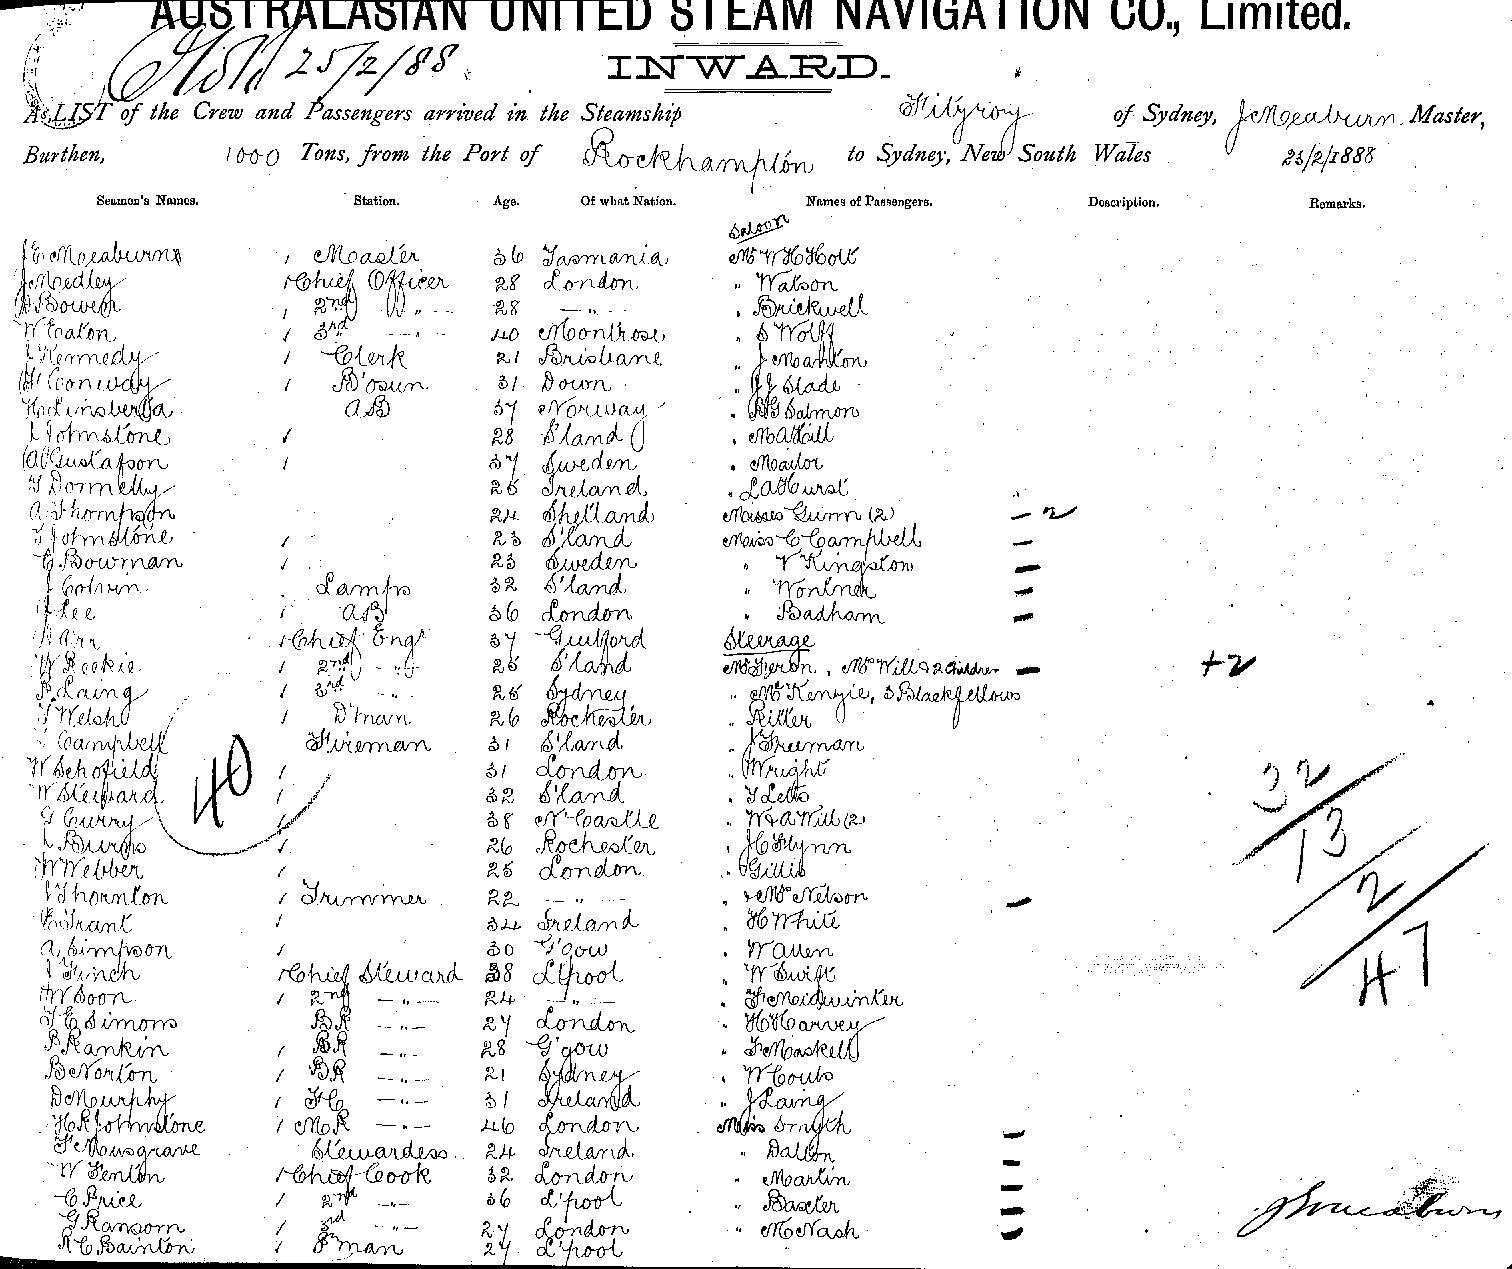 AUSTRALASIAN UNITED STEAM NAVIGATION CO., Limited.
25/2/88
INWARD.
A LIST of the Crew and Passengers arrived in the Steamship Fitzroy of Sydney, J Meaburn Master,
Burthen, 1000 Tons, from the Port of Rockhampton to Sydney, New South Wales 25/2/1888
Seamen's Names. Station. Age. Of what Nation. Names of Passengers. Description. Remarks.
Saloon
J E Meaburn Master 36 Tasmania Mr W H Holt
J Medley Chief Officer 28 London " Watson
Bowen 2nd " 28 — " — " Brickwell
W Eaton 3rd — " — 40 Montrose " S Wolff
J Kennedy Clerk 21 Brisbane " J Manton
Conway B'osun 31 Down " J J Slade
AB 37 Norway " Salmon
Johnstone 28 S'land " M A Hill
A Gustafson 37 Sweden "
T Donnelly 25 Ireland " L A Hurst
A Thompson 24 Shetland Misses Gunn (2) — 2
T Johnstone 23 S'land Miss C Campbell —
C Bowman 23 Sweden " V Kingston —
J Colvin Lamps 32 S'land " —
J Lee AB 36 London " Badham —
Chief Engr 37 Guilford Steerage
W Reekie 2nd — " — 25 S'land , Mrs Will & 2 Children — +2
Laing 3rd — " — 25 Sydney " Kenzie, 3 Blackfellows
T Welsh D'man 26 Rochester " Ritter
Campbell Fireman 31 S'land " J Freeman
W Schofield 31 London " Wright
W Steward 32 S'land " T Letts
40
32
Curry 38 N'Castle " W & A Will (2)
13
Burns 26 Rochester " J C Flynn
W Webber 25 London " Gillis
2
J Thornton Trimmer 22 — " — " & Mrs Nelson —
Grant 34 Ireland " H White
47
A Simpson 30 G'gow " W Allen
J Finch Chief Steward 38 L'pool " W Swift
W Soon 2nd — " — 24 — " — " F Midwinter
T E Simons BR — " — 27 London " H Harvey
Rankin BR — " — 28 G'gow " F Maskell
B Norton BR — " — 21 Sydney " W Couts
D Murphy FC — " — 31 Ireland " J Laing
H R Johnstone MR — " — 46 London Miss Smyth —
F Musgrave Stewardess 24 Ireland " Dalton —
W Fenton Chief Cook 32 London " Martin —
C Price 2nd — " — 36 L'pool " Baxter —
G Ransom 3rd — " — 27 London " McNash —
R C Bainton P'man 27 L'pool
J E Meaburn